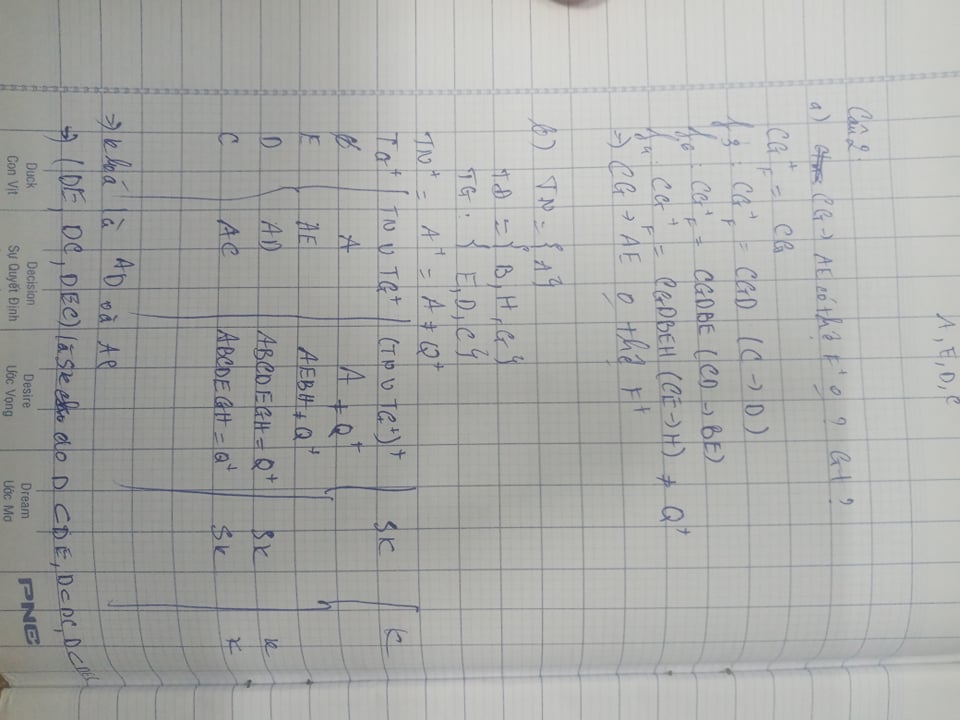 A, E, D, C
Câu 2:
a) CG → AE có thể F⁺ o ? Gt ?
CG⁺F = CG
f3 : CG⁺F = CGD (C → D)
f6 : CG⁺F = CGDBE (CD → BE)
f4 : CG⁺F = CGDBEH (CE → H) ≠ Q⁺
⇒ CG → AE o thể F⁺
b) TN = { A}
TD = { B, H, G}
TG : { E, D, C}
TN⁺ = A⁺ = A ≠ Q⁺
TG⁺ TN ∪ TG⁺ (TN ∪ TG⁺)⁺ SK K
Ø A A ≠ Q⁺
E AE AEBH ≠ Q⁺
D AD ABCDEGH = Q⁺ SK K
C AC ABCDEGH = Q⁺ SK K
⇒ khoá là AD và AC
⇒ (DE, DC, DEC) là SK do D ⊂ DE, D ⊂ DC, D ⊂ DEC
Duck Decision Desire Dream PNC
Con Vịt Sự Quyết Định Ước Vọng Ước Mơ